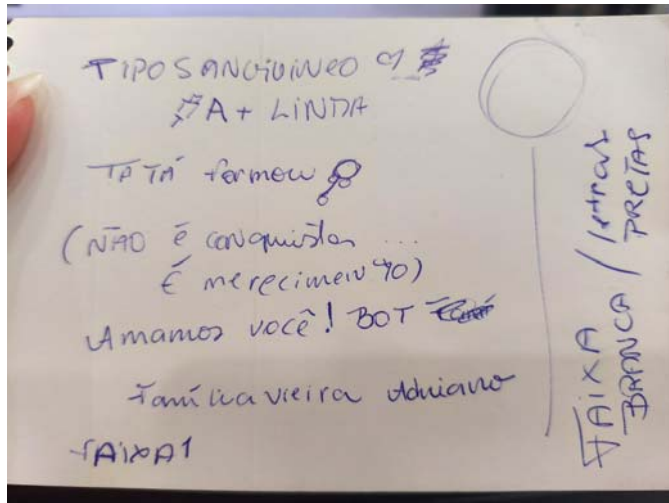 TIPO SANGUINEO
#A+ LINDA
TATÁ formou
(NÃO é conquistar ...
É merecimento)
Amamos você! BOT
Família vieira Adriano
FAIXA 1
FAIXA BRANCA / letras PRETAS